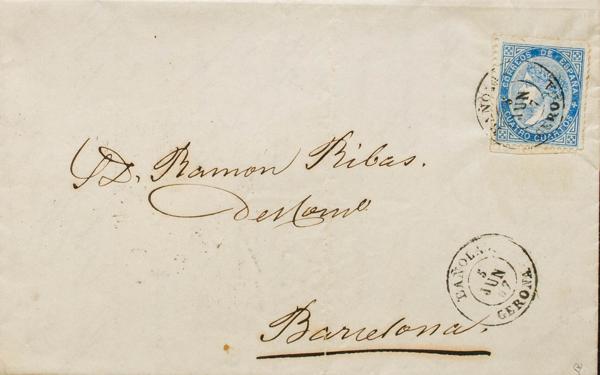 CORREOS DE ESPAÑA
CUATRO CUARTOS
5
JUN
67
GERONA
Sr. D. Ramon Ribas.
del Com.º
BAÑOLAS
5
JUN
67
GERONA
Barcelona.